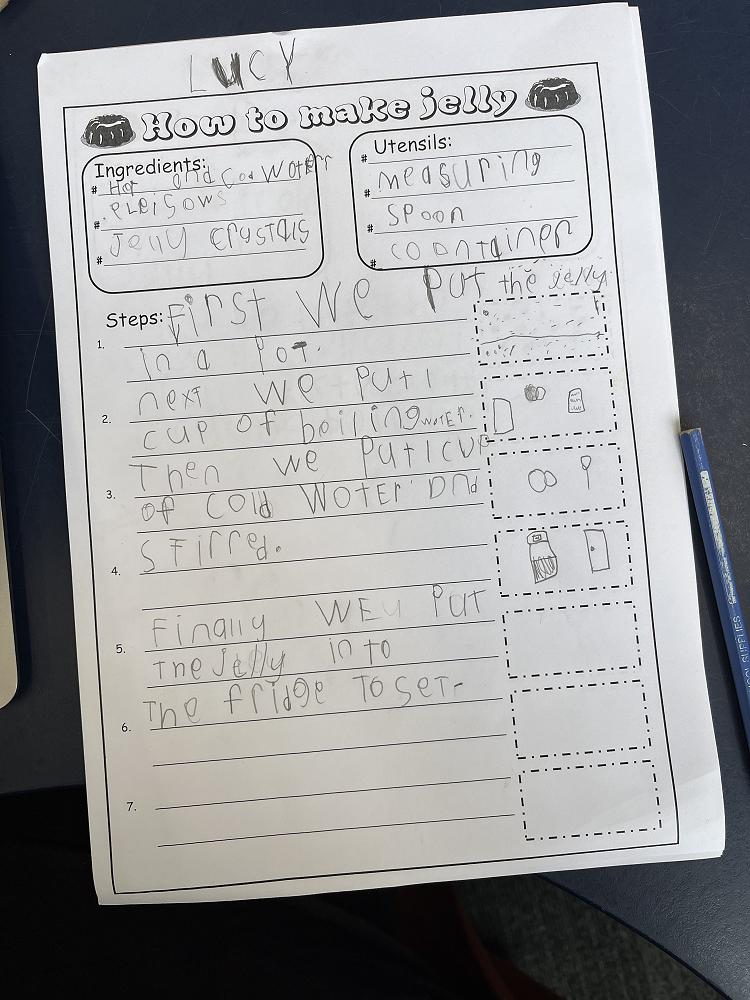 LUCY
How to make jelly
Ingredients:
# Hot and cod woterr
# pleisows
Jelly crystals
#
Utensils:
#
# measuring
spoon
#
coontainer
#
Steps: First we put the jelly
1.
in a pot.
next we put 1
2.
cup of boiling woter.
Then we put 1 cup
3.
of cold woter and
stirred.
4.
Finally we put
5.
the jelly in to
the fridge to set.
6.
7.
SUPPLIES